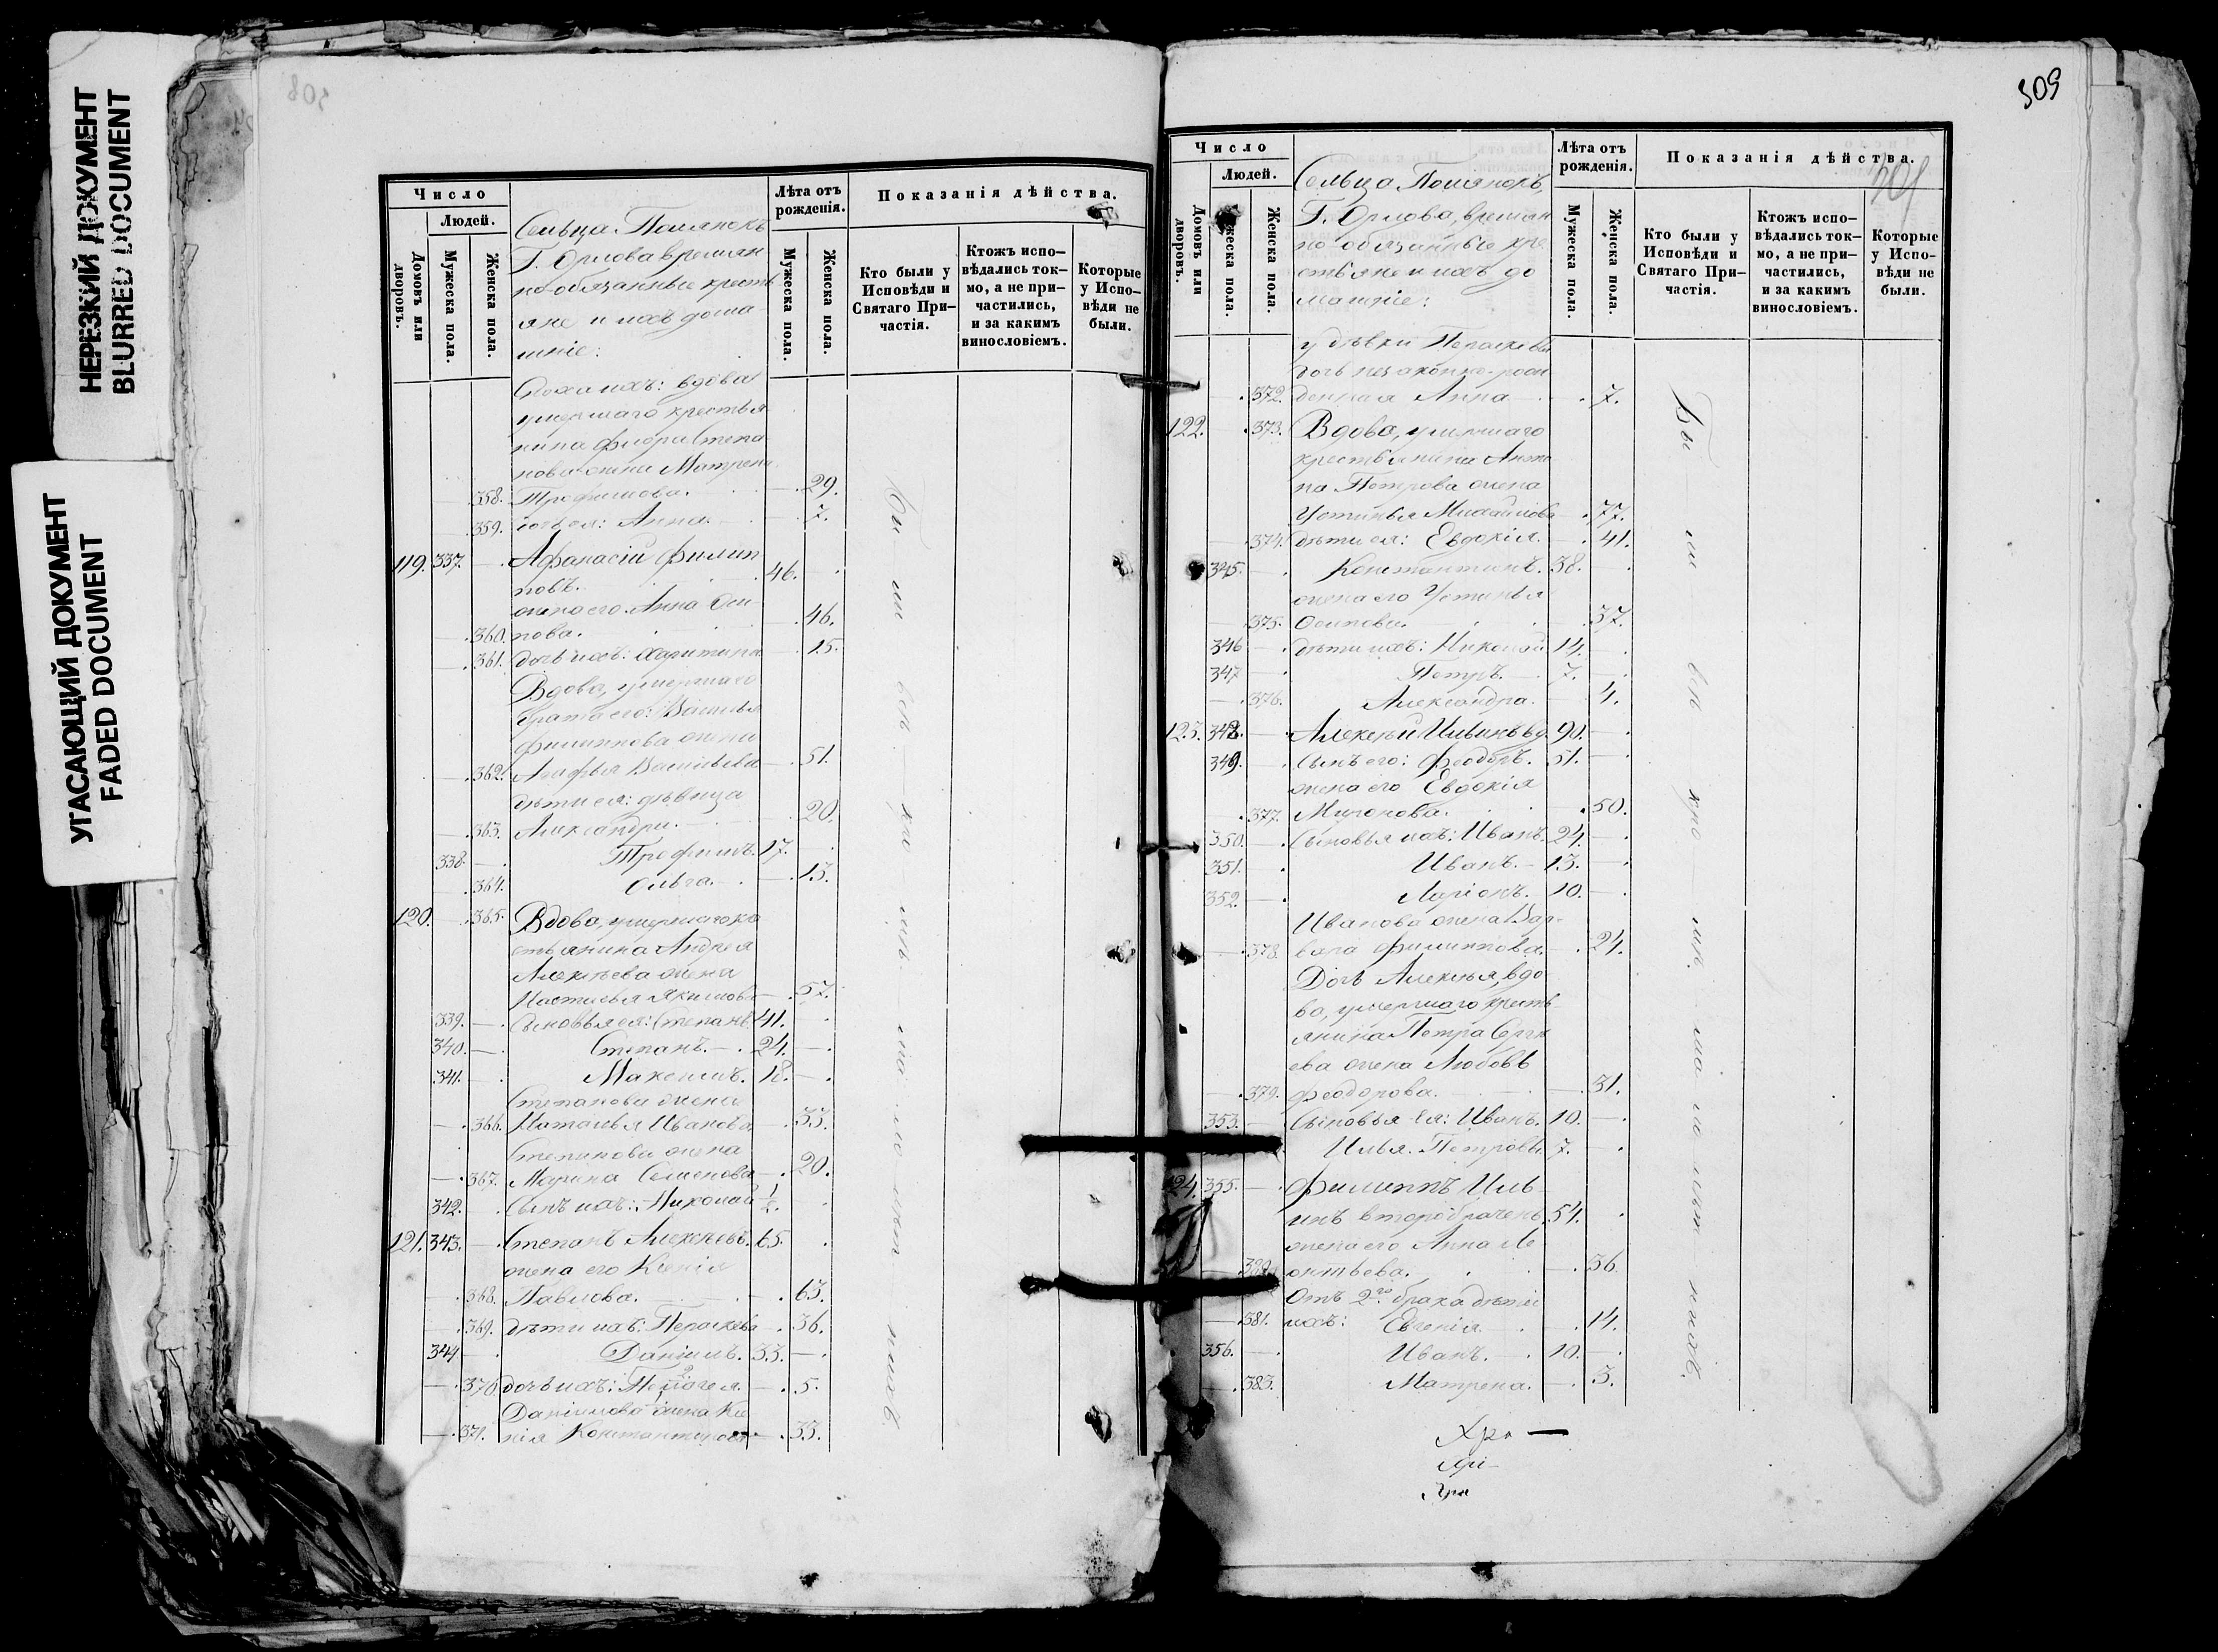 НЕРЕЗКИЙ ДОКУМЕНТ
BLURRED DOCUMENT
УГАСАЮЩИЙ ДОКУМЕНТ
FADED DOCUMENT
308
Число
Людей.
Домовъ или дворовъ.
Мужеска пола.
Женска пола.
Сельца Поляновъ
Г. Орлова времен
но-обязанные кресть
яне и ихъ дома
шніе:
Лѣта отъ рожденія.
Мужеска пола.
Женска пола.
Показанія дѣйства.
Кто были у Исповѣди и Святаго При-частія.
Ктожъ испо-вѣдались ток-мо, а не при-частились, и за какимъ винословіемъ.
Которые у Испо-вѣди не были.
Сноха ихъ: вдова
умершаго крестья
нина Степа
нова жена Матрена
358. Трофимова. 29.
359. дочь ея: Анна. 7.
119. 337. Афанасій Филип
повъ. 46.
жена его Анна Оси
360. пова. 46.
361. дочь ихъ: Харитина 15.
Вдова, умершаго
брата его: Василья
Филиппова жена
362. Агафья Васильева 51.
дѣти ея: дѣвица
363. Александра. 20.
338. Трофимъ. 17.
364. Ольга. 13.
120. 365. Вдова, умершаго кре
стьянина Андрея
Алексѣева жена
Настасья Якимова 57.
339. Сыновья ея: Степанъ 41.
340. Степанъ. 24.
341. Максимъ. 18.
Степанова жена
366. Наталья Иванова 33.
Степанова жена
367. Марина Семенова 20.
342. Сынъ ихъ: Николай
121. 343. Степанъ Алексѣевъ. 65.
жена его Ксенія
368. Павлова. 63.
369. дѣти ихъ: Пераскева 36.
344 Даніилъ. 33.
370 дочь ихъ: Пелагея. 5.
Даніилова жена Ксе
371. нія Константинова 33.
Бы ли
309
Число
Людей.
Домовъ или дворовъ.
Мужеска пола.
Женска пола.
Сельца Поляновъ,
Г. Орлова, времен
но-обязанные кре
стьяне и ихъ до
машніе:
Лѣта отъ рожденія.
Мужеска пола.
Женска пола.
Показанія дѣйства.
Кто были у Исповѣди и Святаго При-частія.
Ктожъ испо-вѣдались ток-мо, а не при-частились, и за какимъ винословіемъ.
Которые у Испо-вѣди не были.
у дѣвки Пераскевы
дочь незаконно-рож
372. денная Анна 7.
122. 373. Вдова, умершаго
крестьянина Анто
на Петрова жена
Устинья Михайлова 77.
374. дѣти ея: Евдокія. 41.
345. Константинъ. 38.
жена его Устинья
375. Осипова. 37.
346 дѣти ихъ: Николай 14.
347 Петръ. 7.
376. Александра. 4.
123. 348. Алексѣй Ильинъ вд. 90.
349. Сынъ его: Феодоръ. 51.
жена его Евдокія
377. Миронова. 50.
350. Сыновья ихъ: Иванъ. 24.
351. Иванъ. 13.
352. Ларіонъ. 10.
Иванова жена Вар-
378. вара Филиппова. 24.
Дочь Алексѣя, вдо
ва, умершаго кресть
янина Петра Сергѣ
ева жена Любовь
379. Феодорова. 31.
353. Сыновья ея: Иванъ. 10.
Илья. Петровы. 7.
124. 355. Филиппъ Иль
инъ второбрачень. 54.
жена его Анна Ле
380. онтьева. 36.
Отъ 2го брака дѣти
381. ихъ: Евгенія. 14.
356. Иванъ. 10.
383. Матрена. 3.
Бы ли